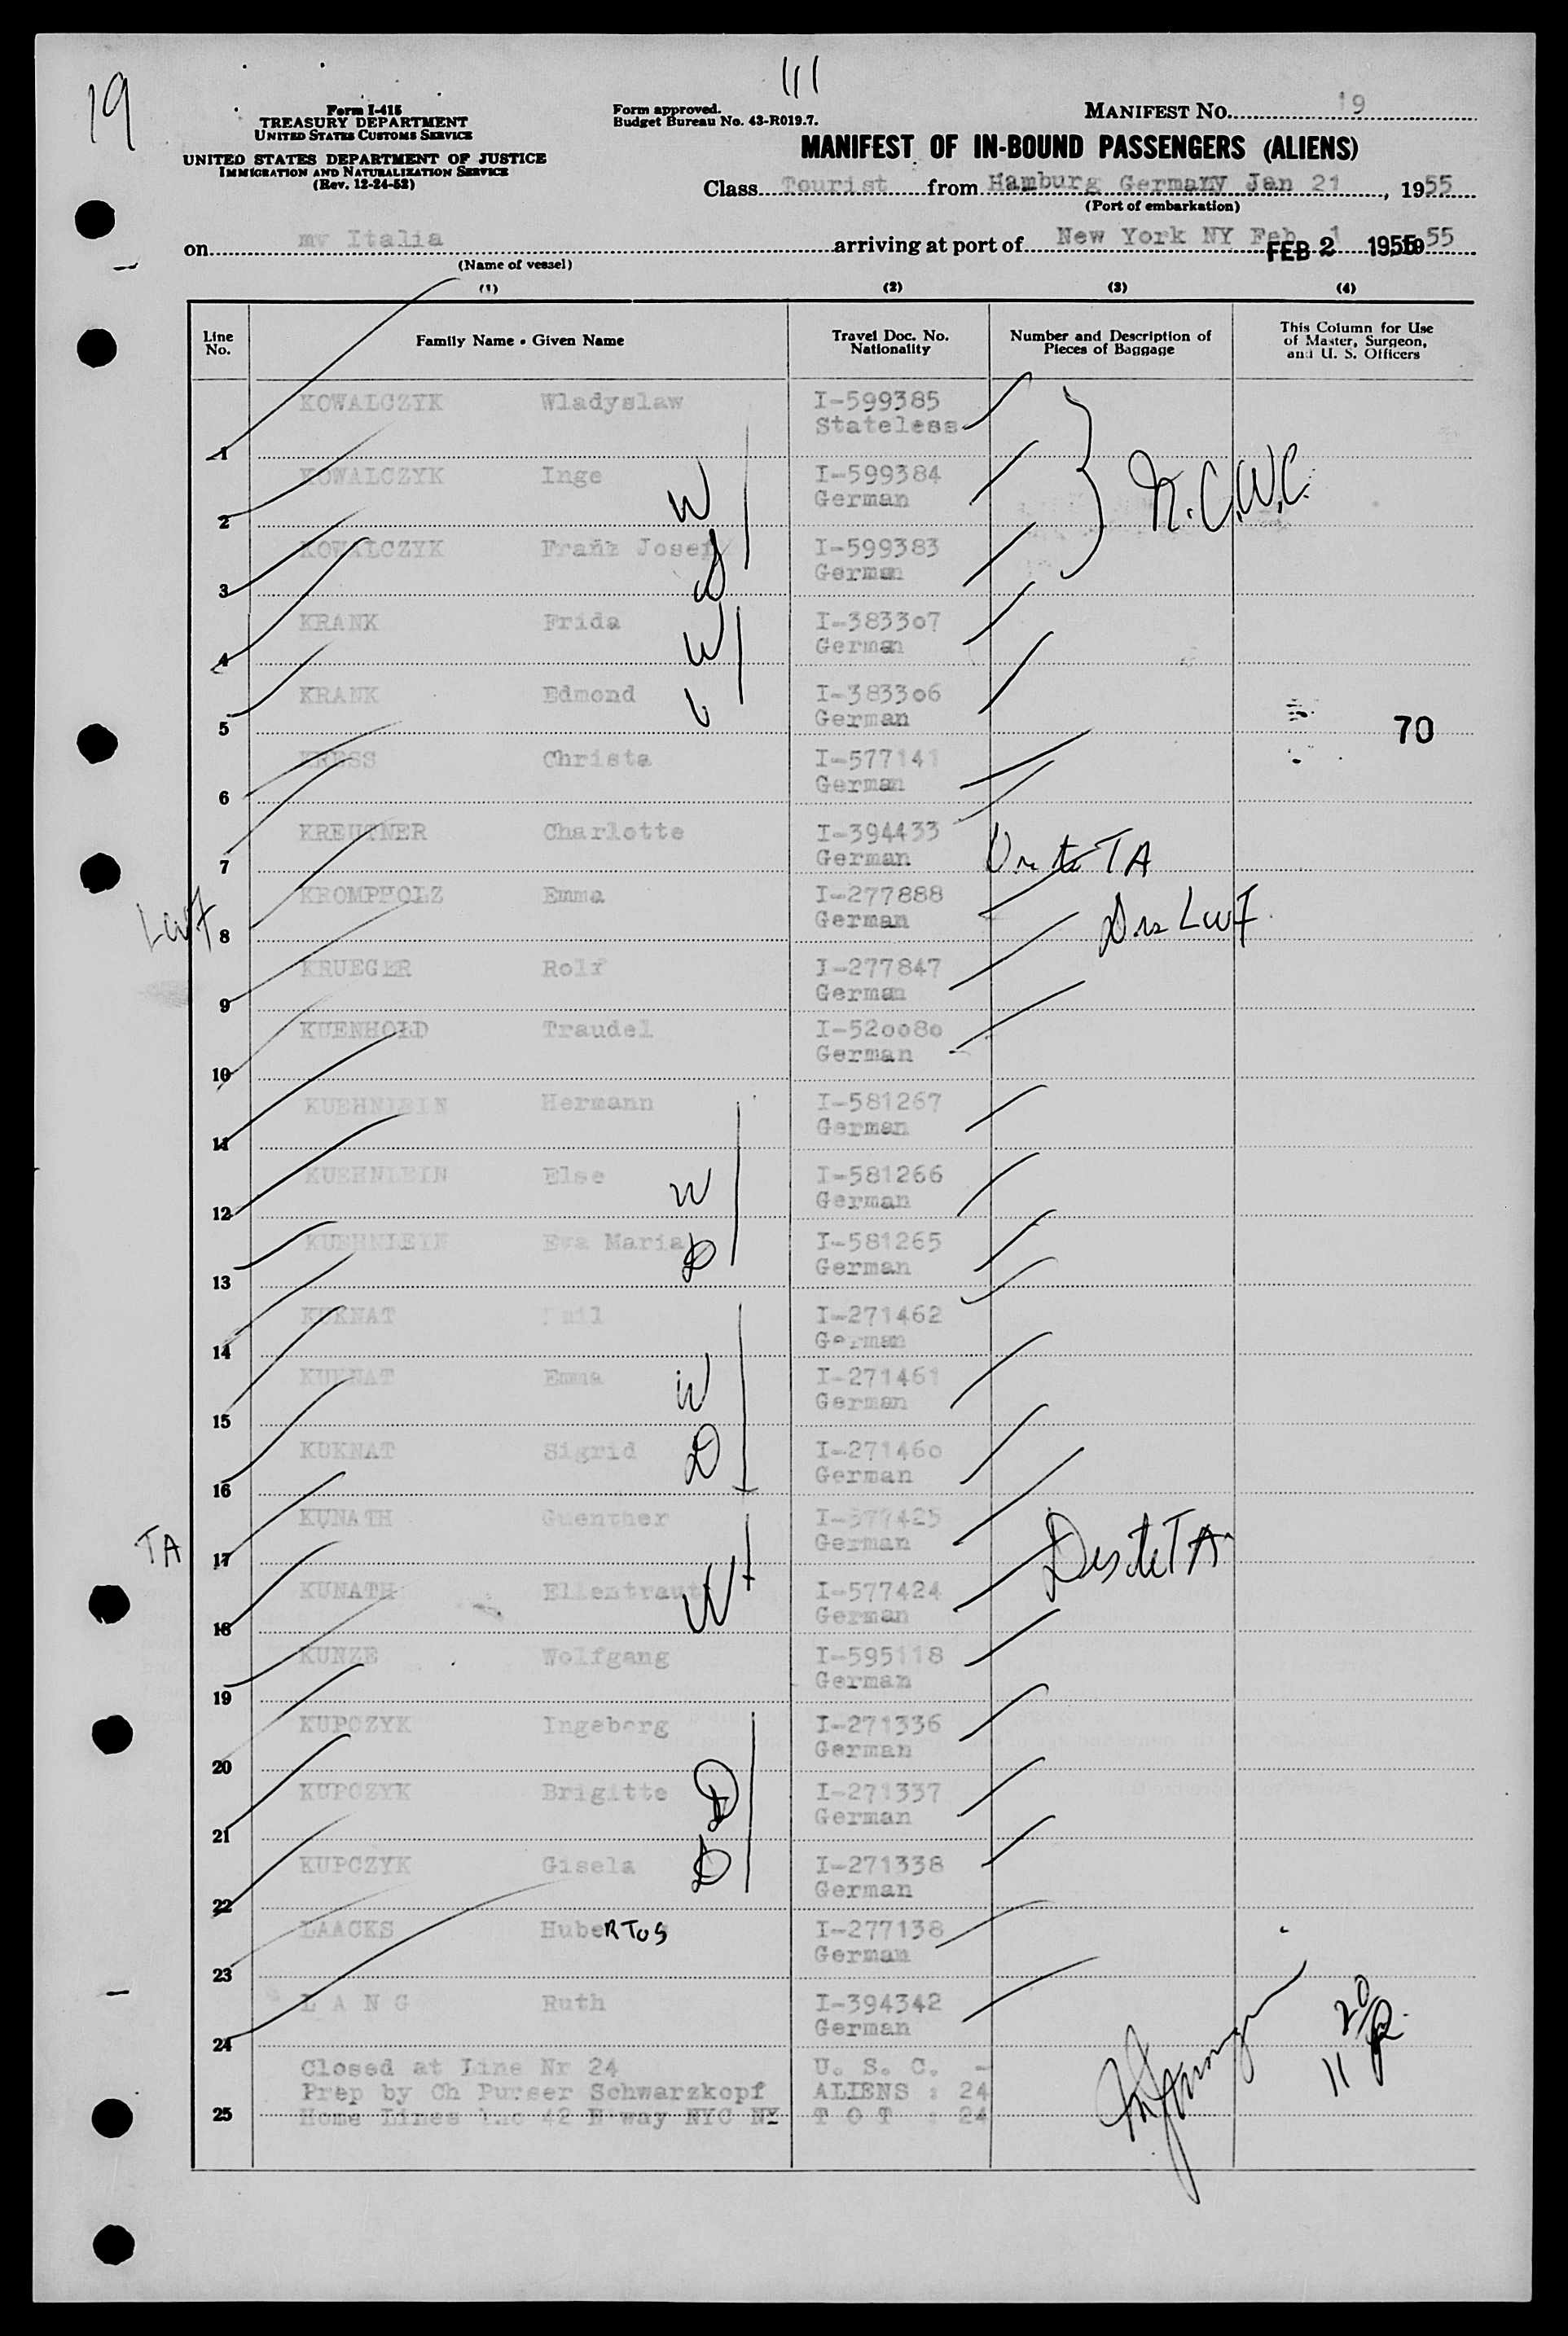 19
111
Form I-415
TREASURY DEPARTMENT
UNITED STATES CUSTOMS SERVICE
UNITED STATES DEPARTMENT OF JUSTICE
IMMIGRATION AND NATURALIZATION SERVICE
(Rev. 12-24-52)
Form approved.
Budget Bureau No. 43-R019.7.
MANIFEST NO. 19
MANIFEST OF IN-BOUND PASSENGERS (ALIENS)
Class Tourist from Hamburg Germany Jan 21, 1955
(Port of embarkation)
on mv Italia arriving at port of New York NY Feb 1 1955
FEB 2 1955
(Name of vessel)
(1) (2) (3) (4)
Line No. Family Name • Given Name Travel Doc. No. Nationality Number and Description of Pieces of Baggage This Column for Use of Master, Surgeon, and U. S. Officers
1 KOWALCZYK Wladyslaw I-599385 Stateless
2 KOWALCZYK Inge W I-599384 German N.C.W.C.
3 KOWALCZYK Franz Josef I-599383 German
4 KRANK Frida W I-383307 German
5 KRANK Edmond I-383306 German 70
6 KRESS Christa I-577141 German
7 KREUTNER Charlotte I-394433 German TA
LWF 8 KROMPHOLZ Emma I-277888 German LWF
9 KRUEGER Rolf I-277847 German
10 KUENHOLD Traudel I-520080 German
11 KUEHNLEIN Hermann I-581267 German
12 KUEHNLEIN Else W I-581266 German
13 KUEHNLEIN Eva Maria D I-581265 German
14 KUKNAT I-271462 German
15 KUKNAT Emma W I-271461 German
16 KUKNAT Sigrid D I-271460 German
TA 17 KUNATH Guenther I-577425 German TA
18 KUNATH Ellentraut W I-577424 German
19 KUNZE Wolfgang I-595118 German
20 KUPCZYK Ingeborg I-271336 German
21 KUPCZYK Brigitte D I-271337 German
22 KUPCZYK Gisela D I-271338 German
23 LAACKS HubeRTUS I-277138 German
24 L A N G Ruth I-394342 German
Closed at Line Nr 24 U. S. C. -
Prep by Ch Purser Schwarzkopf ALIENS : 24
25 Home Lines Inc 42 B'way NYC NY T O T : 24
20
11